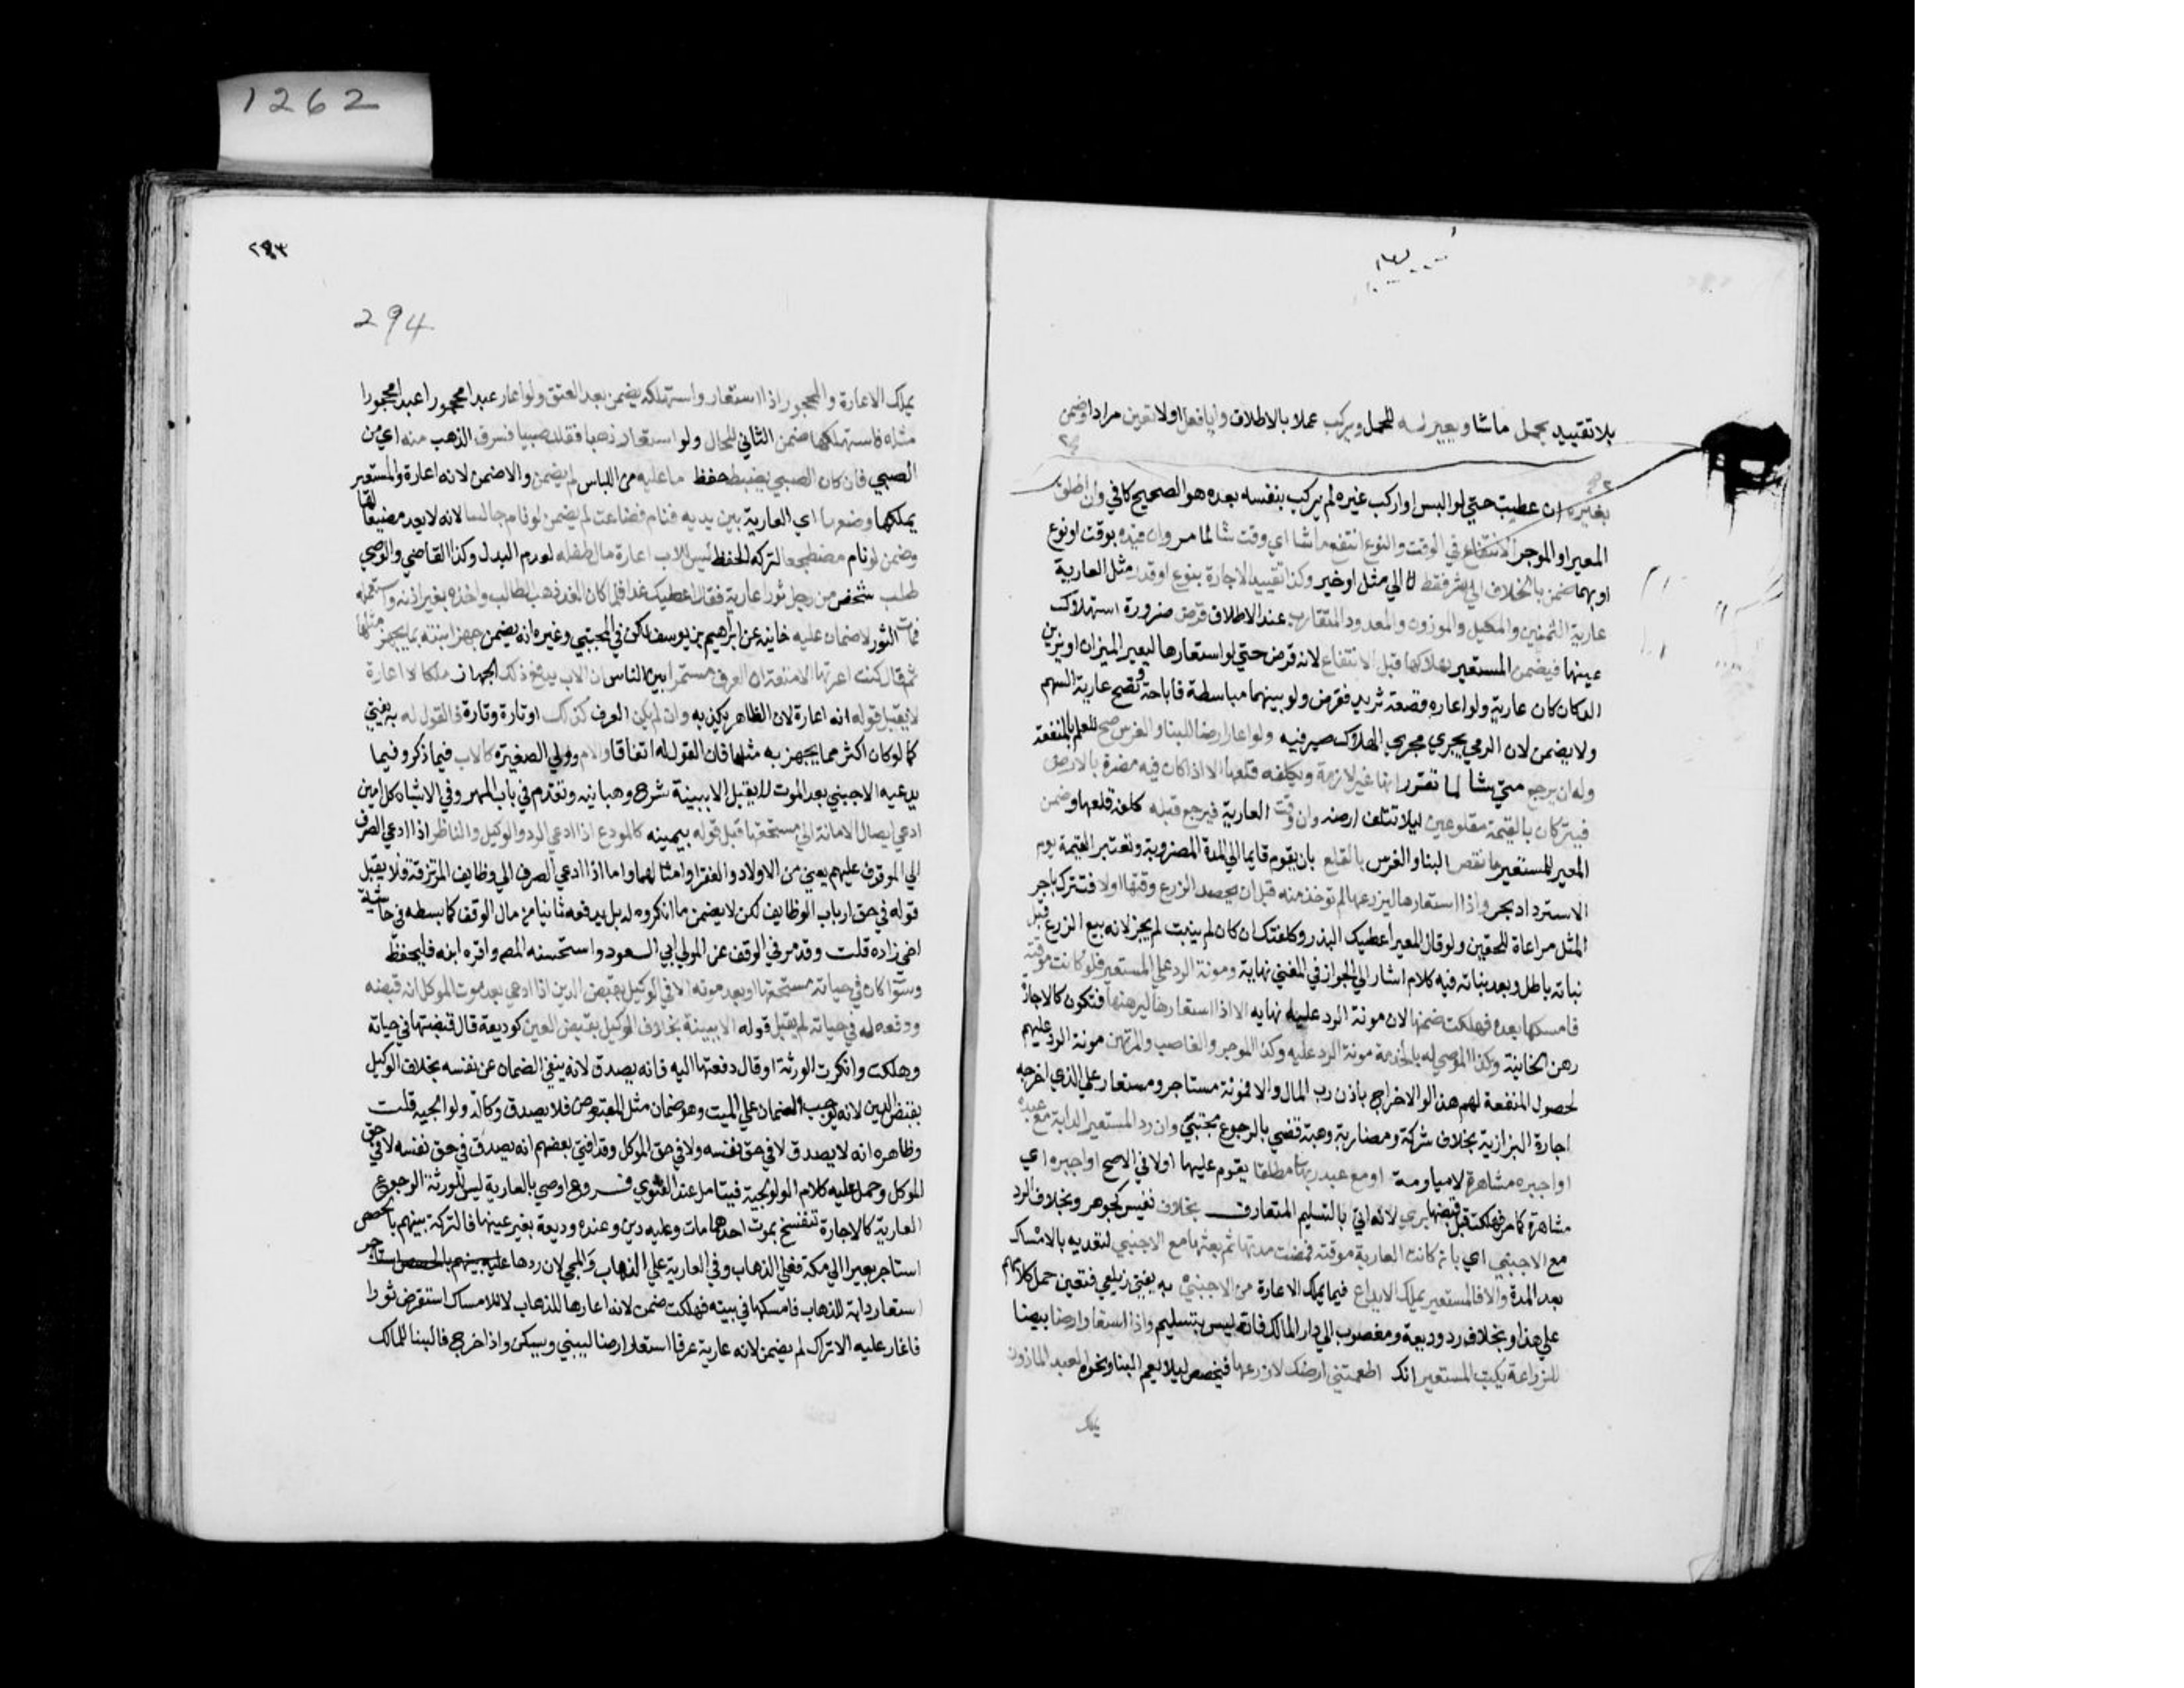 1262
بلا تقييد يحمل ماشا ويعير له للحمل ويركب عملا بالاطلاق وايا فعل اولا تعين مرادا وضمن
بغيره ان عطبت حتي لو البس او اركب غيره لم يركب بنفسه بعده هو الصحيح كافي وان اطلق
المعير او الموجر الانتفاع في الوقت والنوع انتفع ماشا اي وقت شا لما مر وان قيده بوقت او نوع
او بهما ضمن بالخلاف الي شر فقط لا الي مثل او خير وكذا تقييد الاجارة بنوع او قدر مثل العارية
عارية الثمنين والمكيل والموزون والمعدود المتقارب عند الاطلاق قرض ضرورة استهلاك
عينها فيضمن المستعير بهلاكها قبل الانتفاع لانه قرض حتي لو استعارها ليعير الميزان او يزين
الدكان كان عارية ولو اعاره قصعة ثريد فقرض ولو بينهما مباسطة فاباحة وتصح عارية السهم
ولا يضمن لان الرمي يجري مجري الهلاك صيرفيه ولو اعار ارضا للبنا والغرس صح للعلم بالمنفعة
وله ان يرجع متي شا لما تقرر انها غير لازمة ويكلفه قلعها الا اذا كان فيه مضرة بالارض
فيتركان بالقيمة مقلوعين ليلا تتلف ارضه وان وقت العارية فرجع قبله كلفه قلعها وضمن
المعير للمستعير ما نقص البنا والغرس بالقلع بان يقوم قايما الي المدة المضروبة وتعتبر القيمة يوم
الاسترداد بحر واذا استعارها ليزرعها لم توخذ منه قبل ان يحصد الزرع وقتها اولا فتترك باجر
المثل مراعاة للحقين ولو قال المعير اعطيك البذر وكلفتك ان كان لم ينبت لم يجز لانه بيع الزرع قبل
نباته باطل وبعد نباته فيه كلام اشار الي الجواز في المغني نهاية ومونة الرد علي المستعير فلو كانت موقتة
فامسكها بعده فهلكت ضمنها لان مونة الرد عليه نهايه الا اذا استعارها ليرهنها فتكون كالاجازة
رهن الخانية وكذا الموصي له بالخدمة مونة الرد عليه وكذا الموجر والغاصب والمرتهن مونة الرد عليهم
لحصول المنفعة لهم هذا لو الاخراج باذن رب المال والا فمونة مستاجر ومستعار علي الذي اخرجه
اجارة البزازية بخلاف شركة ومضاربة وهبة قضي بالرجوع مجتبي وان رد المستعير الدابة مع عبده
او اجيره مشاهرة لا مياومة او مع عبد ربها مطلقا يقوم عليها اولا في الاصح او اجيره اي
مشاهرة كما مر فهلكت قبل قبضها بري لانه اتي بالتسليم المتعارف بخلاف نفيس كجوهر وبخلاف الرد
مع الاجنبي اي بان كانت العارية موقتة فمضت مدتها ثم بعثها مع الاجنبي لتعديه بالامساك
بعد المدة والا فالمستعير يملك الايداع فيما يملك الاعارة من الاجنبي به يفتي زيلعي فتعين حمل كلامهم
علي هذا وبخلاف رد وديعة ومغصوب الي دار المالك فانه ليس بتسليم واذا استعار ارضا بيضا
للزراعة يكتب المستعير انك اطعمتني ارضك لازرعها فيخصص ليلا يعم البنا ونحوه العبد الماذون
يملك
٢٩٣
294
يملك الاعارة والمحجور اذا استعار واستهلكه يضمن بعد العتق ولو اعار عبدا محجورا عبدا محجورا
مثله فاستهلكها ضمن الثاني للحال ولو استعار ذهبا فقلد صبيا فسرق الذهب منه اي من
الصبي فان كان الصبي يضبط حفظ ما عليه من اللباس لم يضمن والا ضمن لانه اعارة والمستعير
يملكها وضعها اي العارية بين يديه فنام فضاعت لم يضمن لو نام جالسا لانه لا يعد مضيعا لها
وضمن لو نام مضطجعا لتركه الحفظ ليس للاب اعارة مال طفله لعدم البدل وكذا القاضي والوصي
طلب شخص من رجل ثورا عارية فقال اعطيك غدا فلما كان الغد ذهب الطالب واخذه بغير اذنه واستعمله
فمات الثور لا ضمان عليه خانيه عن ابراهيم بن يوسف لكن في المجتبي وغيره انه يضمن جهز ابنته بما يجهز مثلها
ثم قال كنت اعرتها الامتعة ان العرف مستمرا بين الناس ان الاب يدفع ذلك الجهاز ملكا لا اعارة
لا يقبل قوله انه اعارة لان الظاهر يكذبه وان لم يكن العرف كذلك او تارة وتارة فالقول له به يفتي
كما لو كان اكثر مما يجهز به مثلها فان القول له اتفاقا والام وولي الصغيرة كالاب فيما ذكر وفيما
يدعيه الاجنبي بعد الموت لا يقبل الا ببينة شرح وهبانيه وتقدم في باب المهر وفي الاشباه كل امين
ادعي ايصال الامانة الي مستحقها قبل قوله بيمينه كالمودع اذا ادعي الرد والوكيل والناظر اذا ادعي الصرف
الي الموقوف عليهم يعني من الاولاد والفقرا وامثالهما واما اذا ادعي الصرف الي وظايف المرتزقة فلا يقبل
قوله في حق ارباب الوظايف لكن لا يضمن ما انكروه له بل يدفعه ثانيا من مال الوقف كما بسطه في حاشية
اخي زاده قلت وقد مر في الوقف عن المولي ابي السعود واستحسنه المص واقره ابنه فليحفظ
وسوا كان في حياته مستحقها او بعد موته الا في الوكيل بقبض الدين اذا ادعي بعد موت الموكل انه قبضه
ودفعه له في حياته لم يقبل قوله الا ببينة بخلاف الوكيل بقبض العين كوديعة قال قبضتها في حياته
وهلكت وانكرت الورثة او قال دفعتها اليه فانه يصدق لانه ينفي الضمان عن نفسه بخلاف الوكيل
بقبض الدين لانه يوجب الضمان علي الميت وهو ضمان مثل المقبوض فلا يصدق وكالة ولوالجيه قلت
وظاهره انه لا يصدق لا في حق نفسه ولا في حق الموكل وقد افتي بعضهم انه يصدق في حق نفسه لا في حق
الموكل وحمل عليه كلام الولوالجية فيتامل عند الفتوي فروع اوصي بالعارية ليس للورثة الرجوع
العارية كالاجارة تنفسخ بموت احدهما مات وعليه دين وعنده وديعة بغير عينها فالتركة بينهم بالحصص
استاجر بعيرا الي مكة فعلي الذهاب وفي العارية علي الذهاب والمجي لان ردها عليه
استعار دابة للذهاب فامسكها في بيته فهلكت ضمن لانه اعارها للذهاب لا للامساك استقرض ثورا
فاغار عليه الاتراك لم يضمن لانه عارية عرفا استعار ارضا ليبني ويسكن واذا خرج فالبنا للمالك